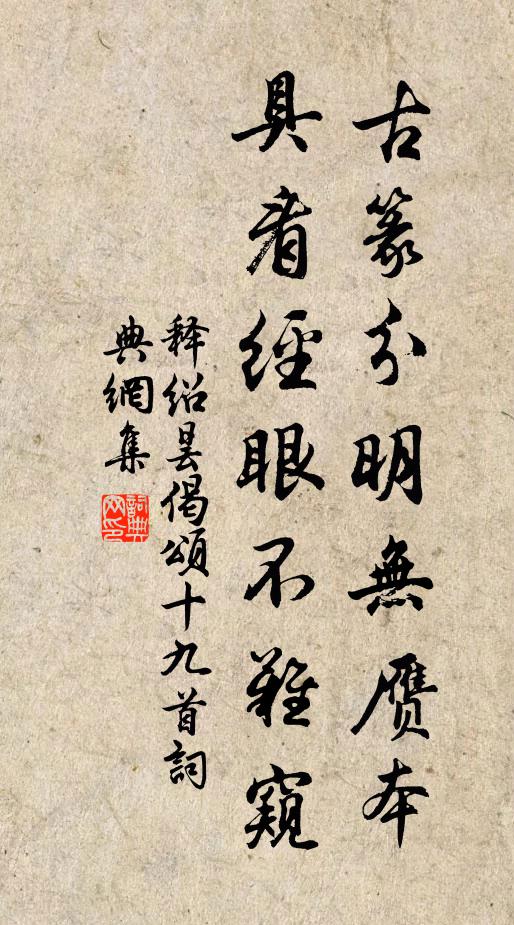 古篆分明無贗本
具看經眼不難窺
释紹曇偈頌十九首詞
典網集
詞典網印